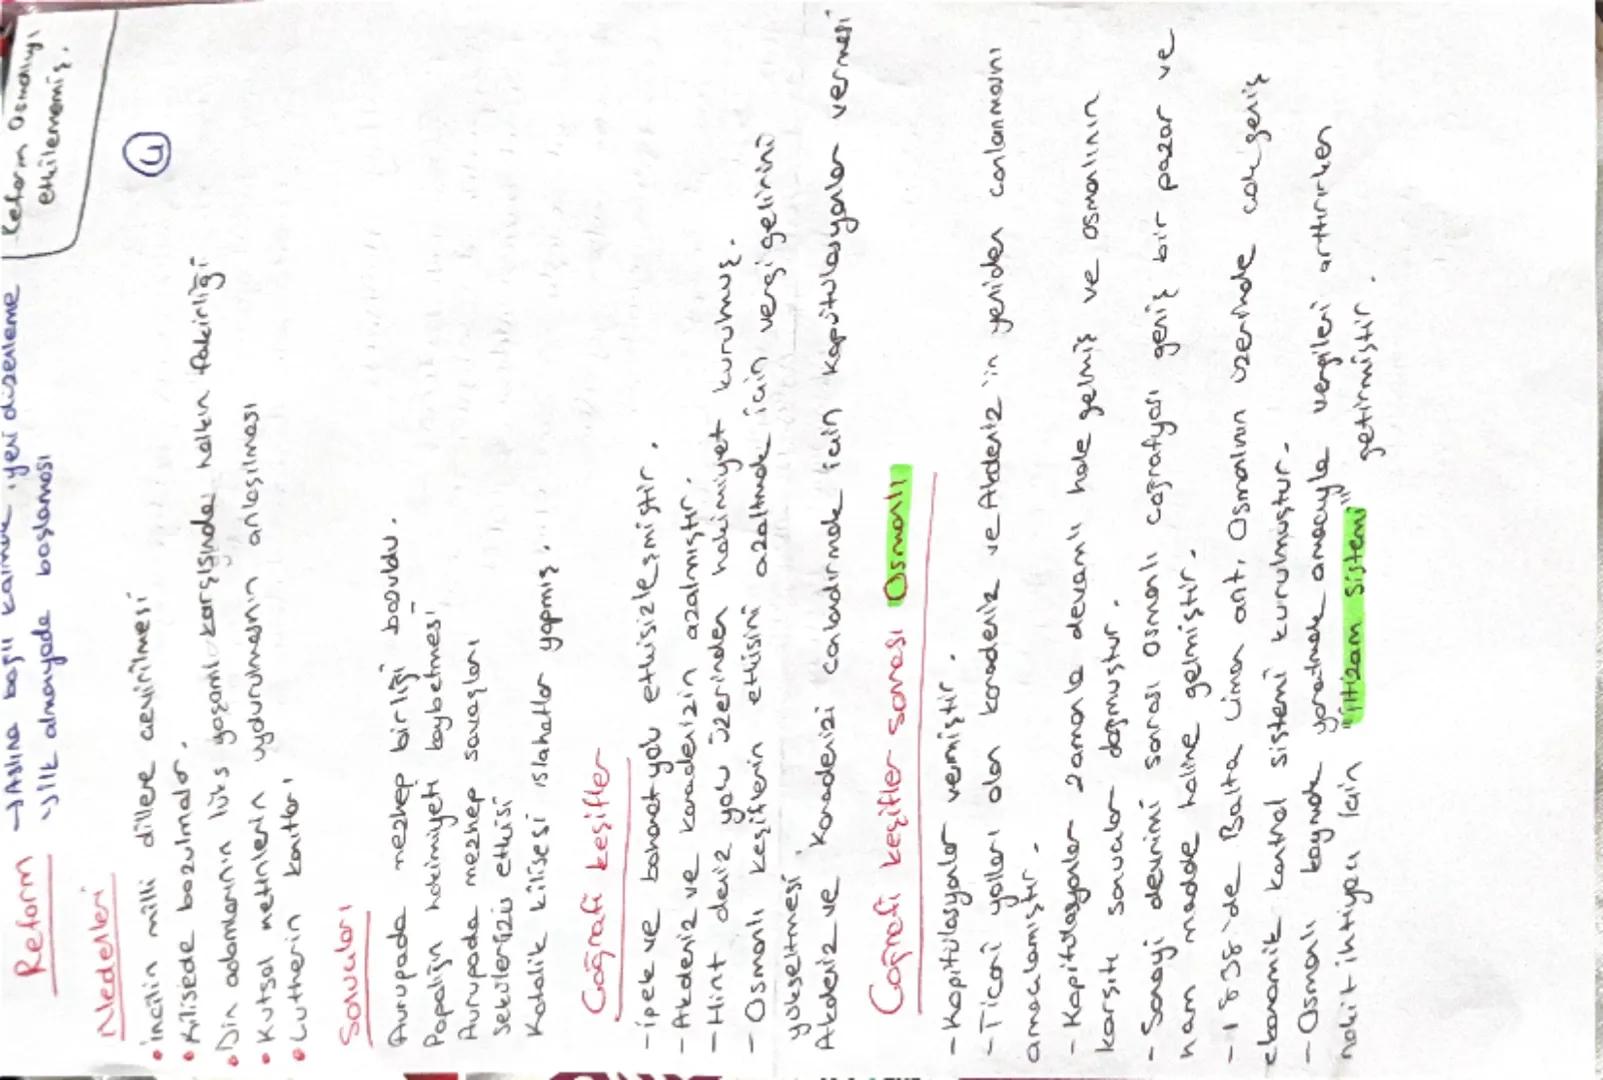 Reform → Aslına bağlı kalarak yeni düzenleme
→ ilk almanyada başlaması
Reform Osmanlıyı
etkilememiş.
4
Nedenleri
• incilin milli dillere çevirilmesi
• Kilisede bozulmalar.
• Din adamlarının lüks yaşamı karşısında halkın fakirliği
• Kutsal metinlerin uydurulmasının anlaşılması
• Lutherin
Sonuçları
Avrupada mezhep birliği bozuldu.
Papalığın hakimiyeti kaybetmesi
Avrupada mezhep savaşları
sekülerizis etkisi
Katolik kilisesi ıslahatlar yapmış.
Coğrafi keşifler
- ipek ve baharat yolu etkisizleşmiştir.
- Akdeniz ve karadenizin azalmıştır.
- Hint deniz yolu üzerinden hakimiyet kurulmuş.
- Osmanlı keşiflerin etkisini azaltmak için vergi gelirini
yükseltmesi.
Akdeniz ve Karadenizi canlandırmak için kapitülasyonlar vermesi
Coğrafi keşifler sonrası Osmanlı
- Kapitülasyonlar vermiştir.
- Ticari yolları olan karadeniz ve Akdeniz'in yeniden canlanmasını
amaçlamıştır.
- Kapitülasyonlar zamanla devamlı hale gelmiş ve osmanlının
karşıtı sonuçlar doğmuştur.
- Sanayi devrimi sonrası osmanlı coğrafyası geniş bir pazar ve
ham madde haline gelmiştir.
- 1838'de Balta Liman ant. Osmanlının üzerinde çok geniş
ekonomik kontrol sistemi kurulmuştur.
- Osmanlı kaynak yaratmak amacıyla vergileri arttırırken
nakit ihtiyacı için "iltizam sistemi" getirmiştir.